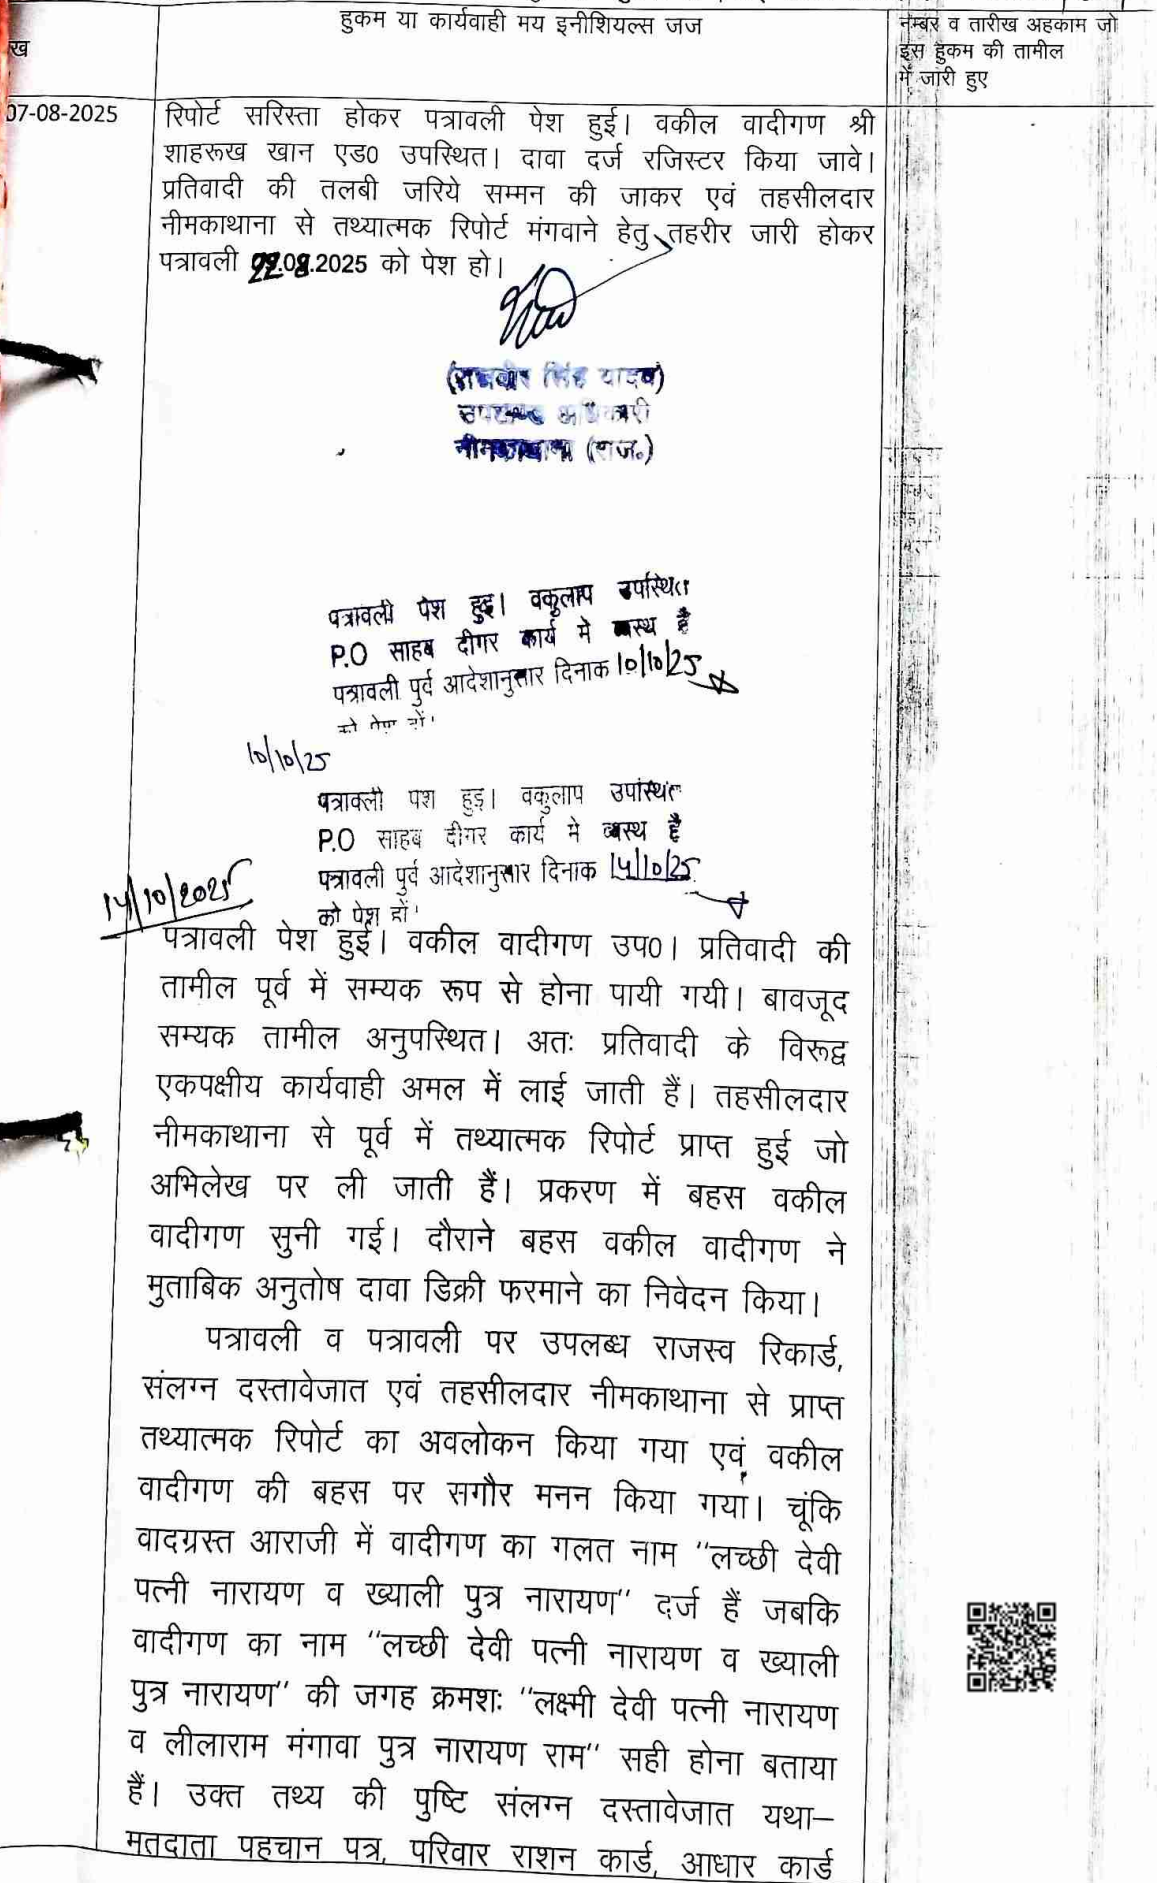 हुकम या कार्यवाही मय इनीशियल्स जज
नम्बर व तारीख अहकाम जो
इस हुकम की तामील
में जारी हुए
ख
07-08-2025
रिपोर्ट सरिस्ता होकर पत्रावली पेश हुई। वकील वादीगण श्री
शाहरूख खान एड0 उपस्थित। दावा दर्ज रजिस्टर किया जावे।
प्रतिवादी की तलबी जरिये सम्मन की जाकर एवं तहसीलदार
नीमकाथाना से तथ्यात्मक रिपोर्ट मंगवाने हेतु तहरीर जारी होकर
पत्रावली 22.08.2025 को पेश हो।
सिंह यादव)
उपखण्ड अधिकारी
नीमकाथाना (राज.)
पत्रावली पेश हुई। वकुलाप उपस्थित
P.O साहब दीगर कार्य मे व्यस्थ है
पत्रावली पुर्व आदेशानुसार दिनाक 10/10/25
को पेश हों।
10/10/25
पत्रावली पेश हुइ। वकुलाप उपस्थित
P.O साहब दीगर कार्य मे व्यस्थ है
पत्रावली पुर्व आदेशानुसार दिनाक 14/10/25
को पेश हों।
14/10/2025
पत्रावली पेश हुई। वकील वादीगण उप0। प्रतिवादी की
तामील पूर्व में सम्यक रूप से होना पायी गयी। बावजूद
सम्यक तामील अनुपस्थित। अतः प्रतिवादी के विरूद्व
एकपक्षीय कार्यवाही अमल में लाई जाती हैं। तहसीलदार
नीमकाथाना से पूर्व में तथ्यात्मक रिपोर्ट प्राप्त हुई जो
अभिलेख पर ली जाती हैं। प्रकरण में बहस वकील
वादीगण सुनी गई। दौराने बहस वकील वादीगण ने
मुताबिक अनुतोष दावा डिक्री फरमाने का निवेदन किया।
पत्रावली व पत्रावली पर उपलब्ध राजस्व रिकार्ड,
संलग्न दस्तावेजात एवं तहसीलदार नीमकाथाना से प्राप्त
तथ्यात्मक रिपोर्ट का अवलोकन किया गया एवं वकील
वादीगण की बहस पर सगौर मनन किया गया। चूंकि
वादग्रस्त आराजी में वादीगण का गलत नाम "लच्छी देवी
पत्नी नारायण व ख्याली पुत्र नारायण" दर्ज हैं जबकि
वादीगण का नाम "लच्छी देवी पत्नी नारायण व ख्याली
पुत्र नारायण" की जगह क्रमशः "लक्ष्मी देवी पत्नी नारायण
व लीलाराम मंगावा पुत्र नारायण राम" सही होना बताया
हैं। उक्त तथ्य की पुष्टि संलग्न दस्तावेजात यथा–
मतदाता पहचान पत्र, परिवार राशन कार्ड, आधार कार्ड